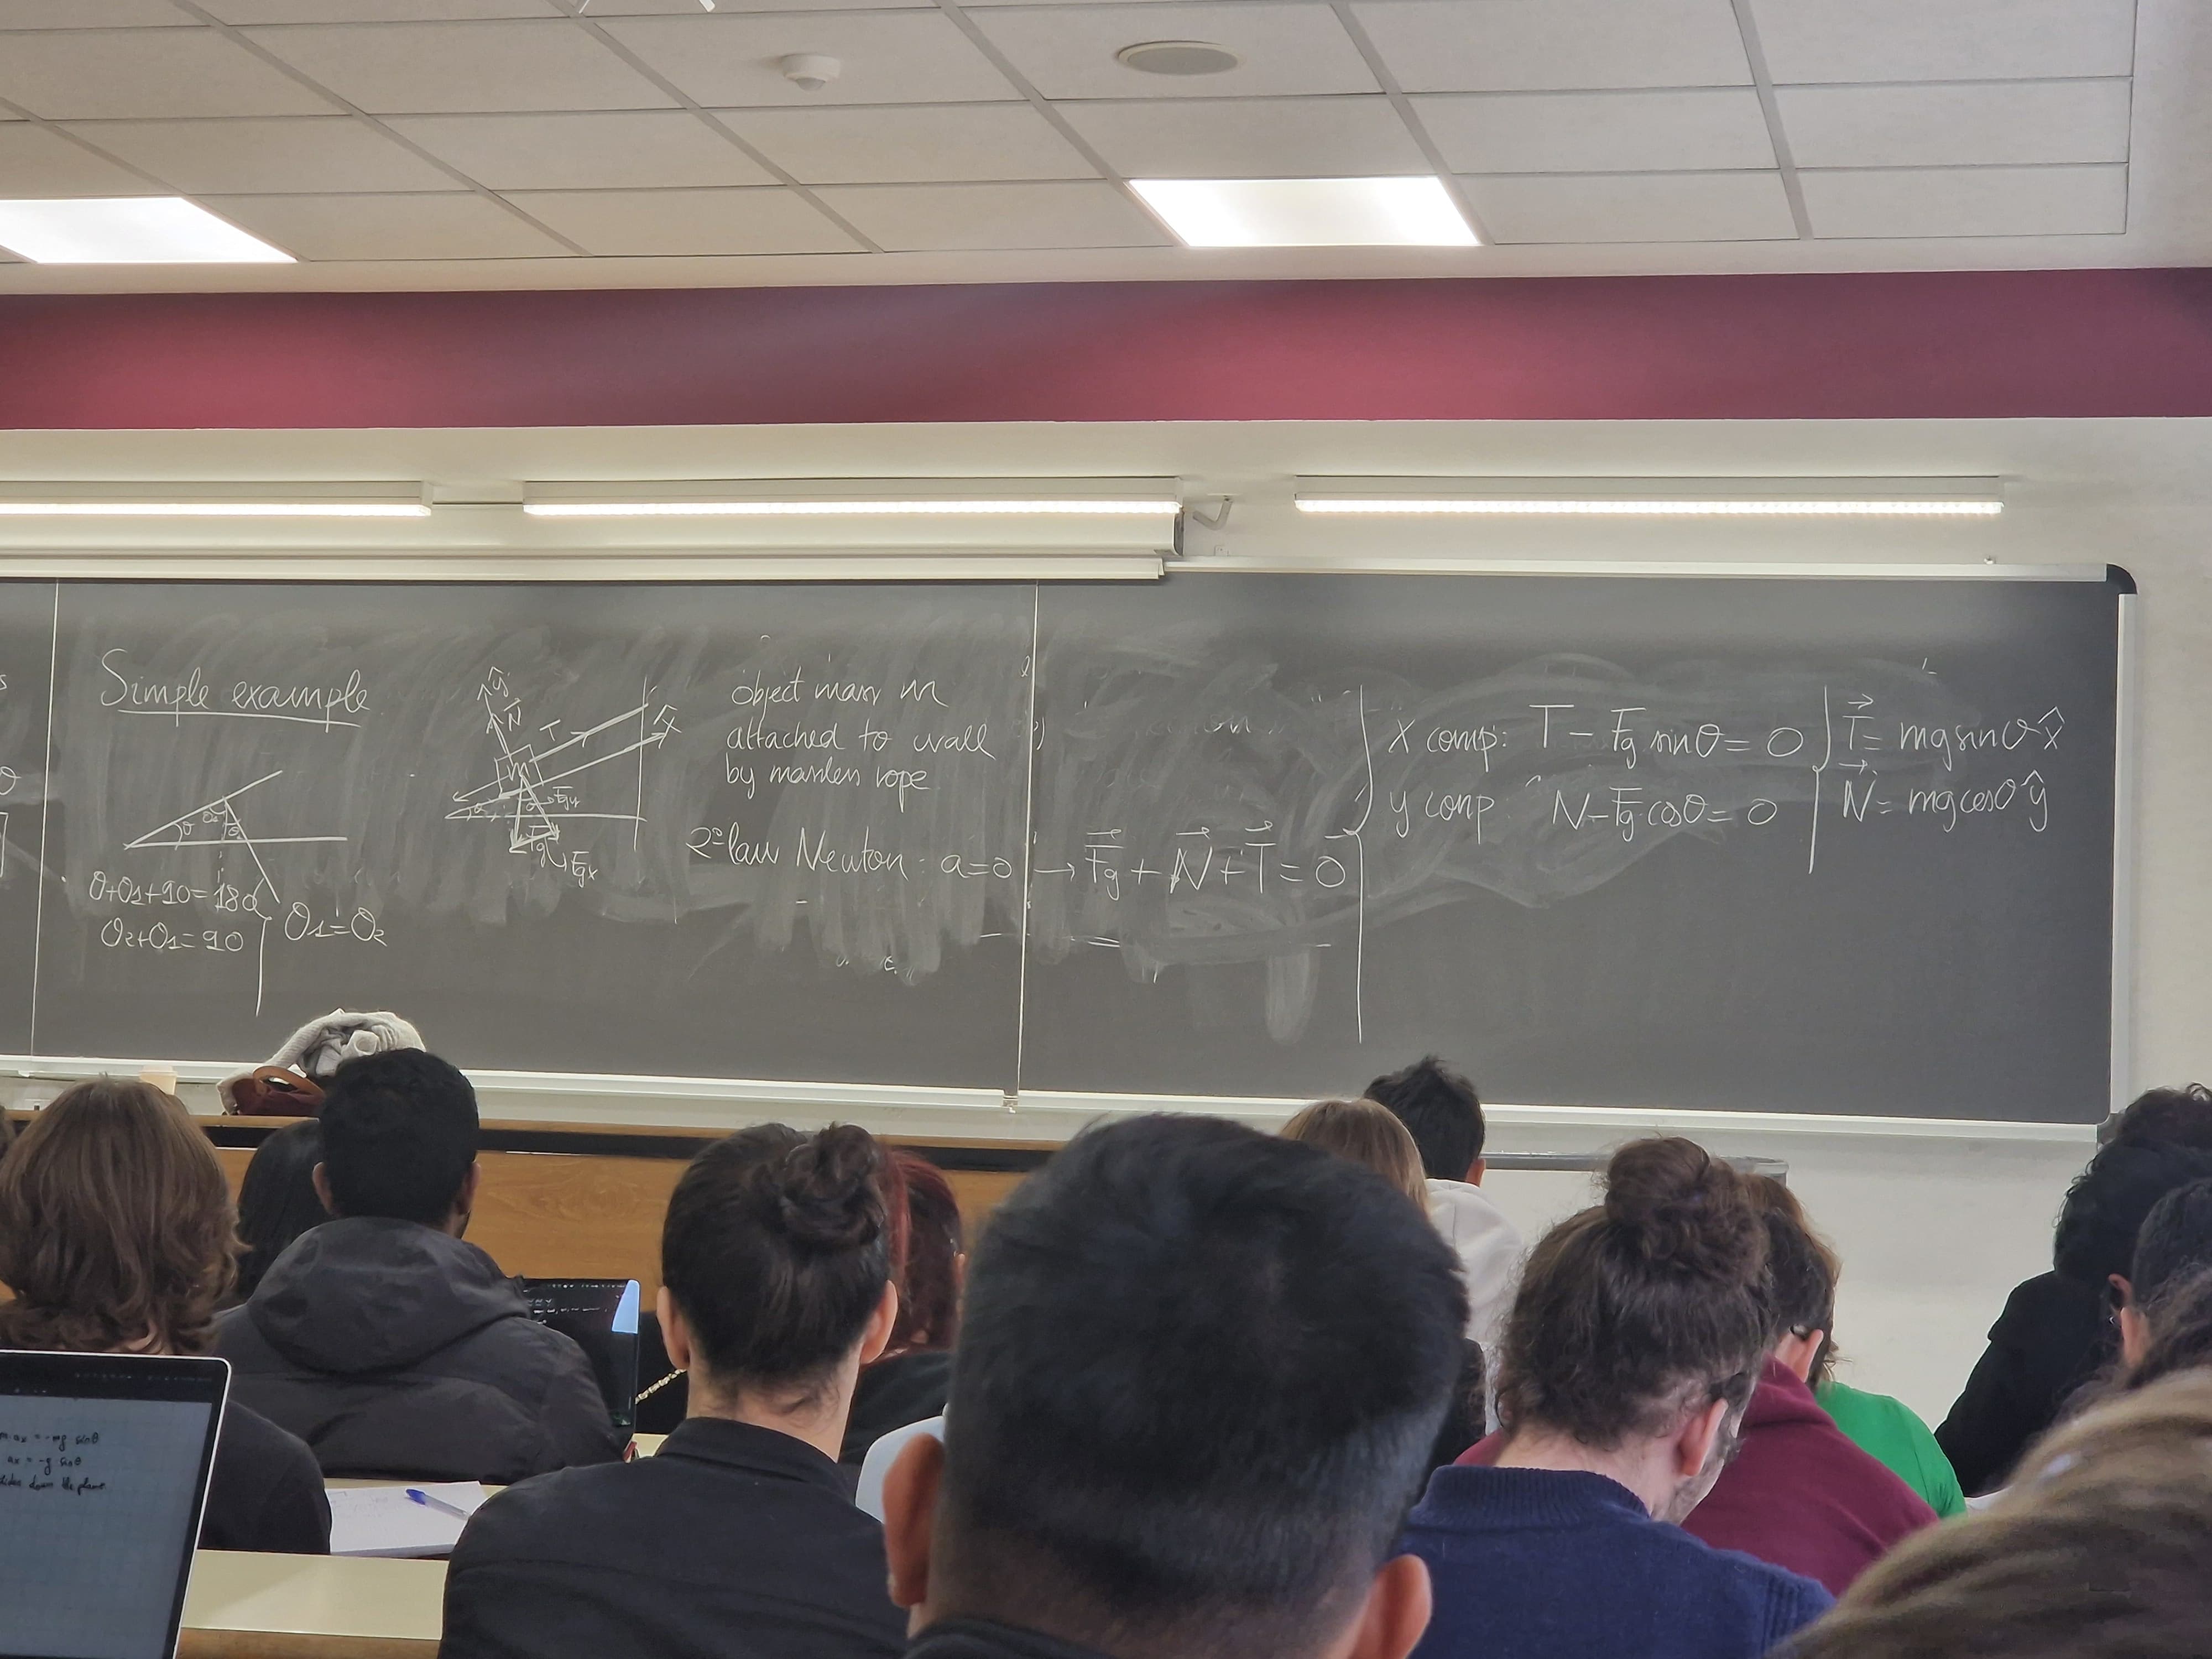 Simple example
θ
θ₁
θ₂
θ+θ₁+90=180
θ₂+θ₁=90
θ₁=θ₂
ŷ
N
T
x̂
m
θ
θ
Fgy
Fg
Fgx
object mass m
attached to wall
by massless rope
2° law Newton: a=0 → F⃗g + N⃗ + T⃗ = 0⃗
x comp: T - Fg sinθ = 0
y comp: N - Fg cosθ = 0
T⃗ = mg sinθ x̂
N⃗ = mg cosθ ŷ
m·ax = -mg sinθ
ax = -g sinθ
down the plane